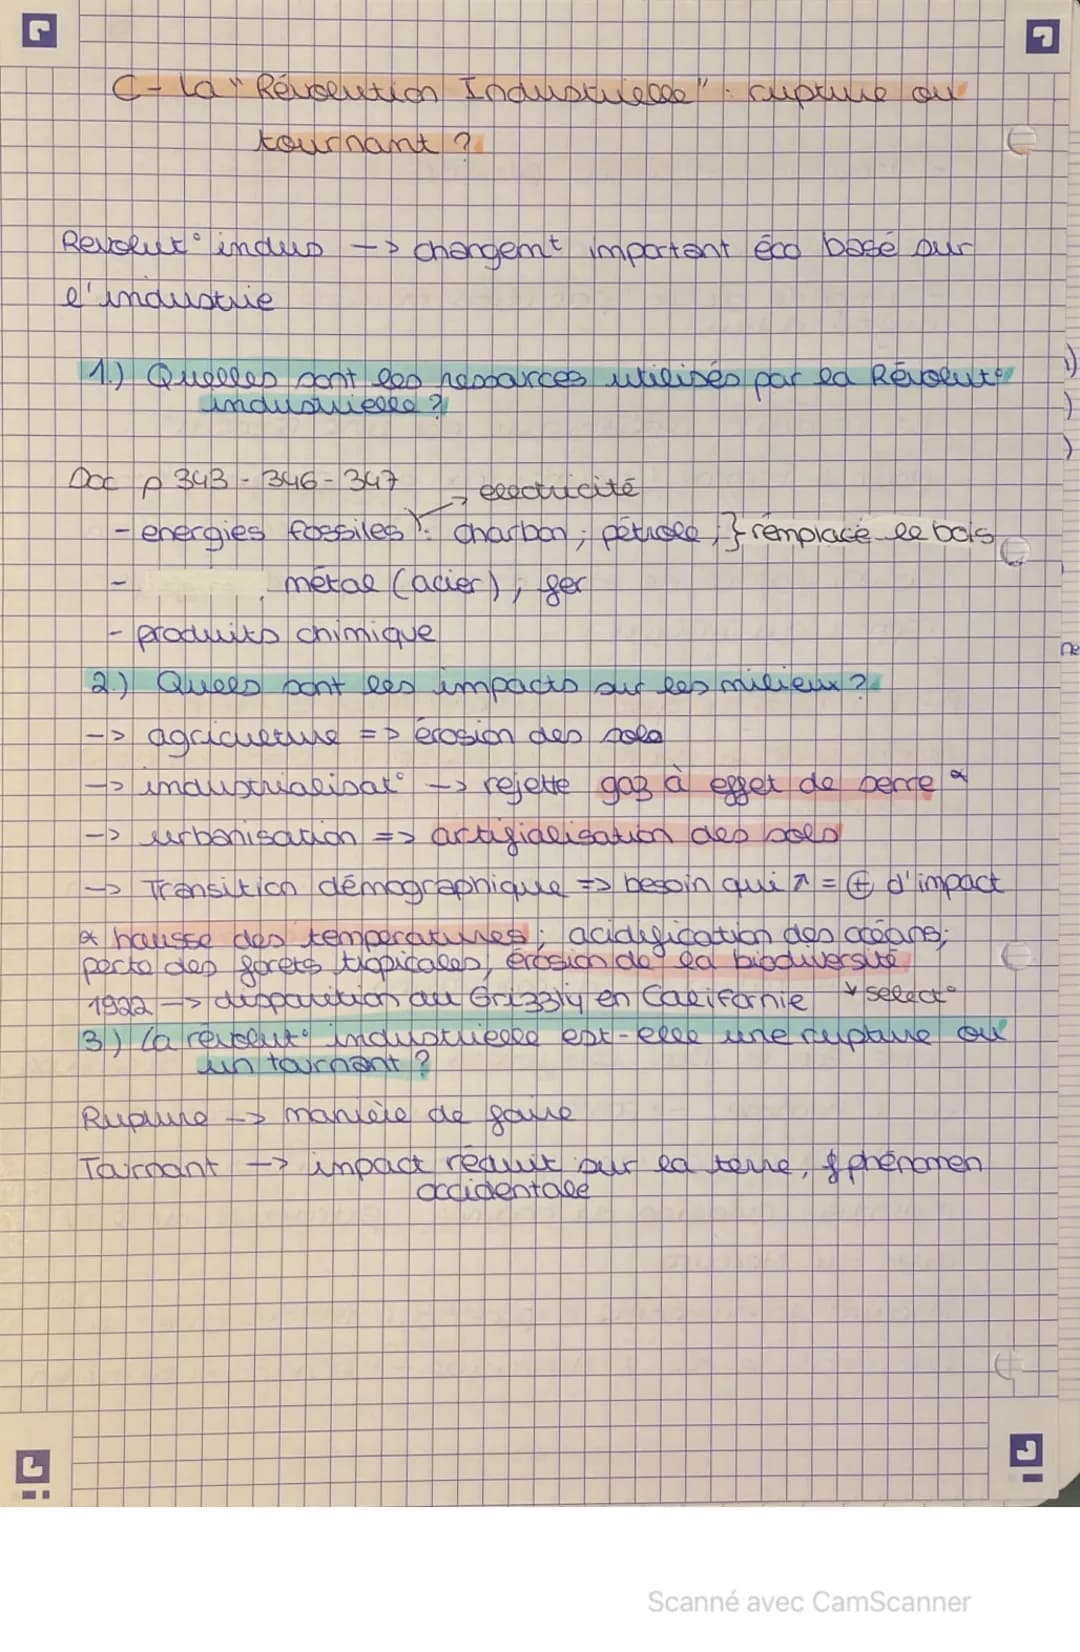 C- La "Révolution Industrielle" : rupture ou
tournant ?
Revolut° indus -> changemt important éco basé sur
l'industrie
1.) Quelles sont les ressources utilisés par la Révolut°
industrielle ?
Doc p 343 - 346 - 347
-> electricité
- energies fossiles : charbon ; pétrole ; } remplace le bois
- métal (acier), fer
- produits chimique
2.) Quels sont les impacts sur les milieux ?
-> agriculture => érosion des sols
-> industrialisat° -> rejette gaz à effet de serre α
-> urbanisation => artifialisation des sols
-> Transition démographique => besoin qui ↗ = ⊕ d'impact
α hausse des temperatures ; acidification des océans ;
perte des forets tropicales, érosion de la biodiversité
1922 -> disparition du Grizzly en Californie ↓ select°
3) La révolut° industrielle est-elle une rupture ou
un tournant ?
Rupture -> manière de faire
Tournant -> impact réduit sur la terre, phénomen
occidentale
Scanné avec CamScanner